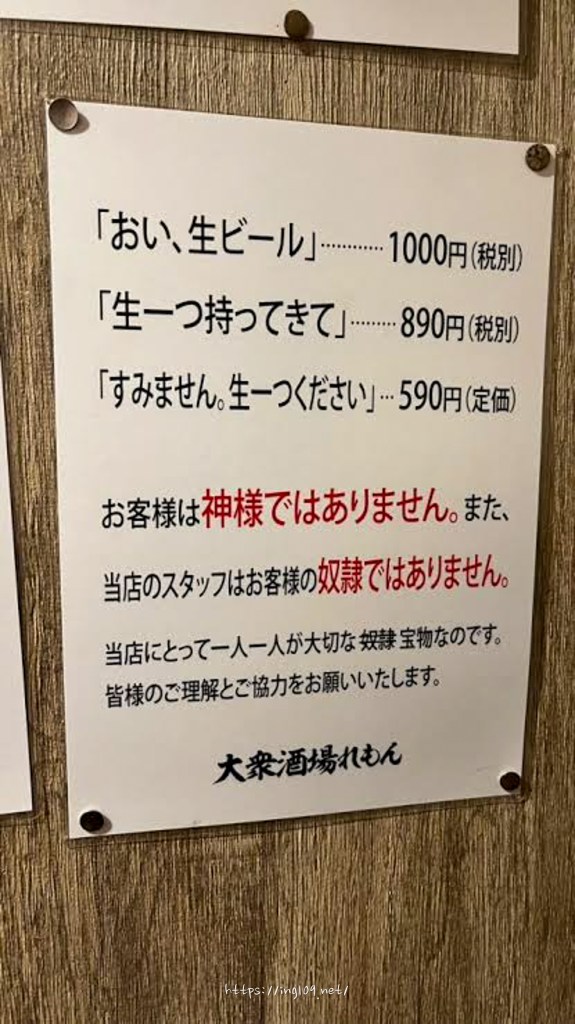 「おい、生ビール」…………1000円(税別)
「生一つ持ってきて」………890円(税別)
「すみません。生一つください」…590円(定価)
お客様は神様ではありません。また、
当店のスタッフはお客様の奴隷ではありません。
当店にとって一人一人が大切な 奴隷 宝物なのです。
皆様のご理解とご協力をお願いいたします。
大衆酒場れもん
https://ing109.net/